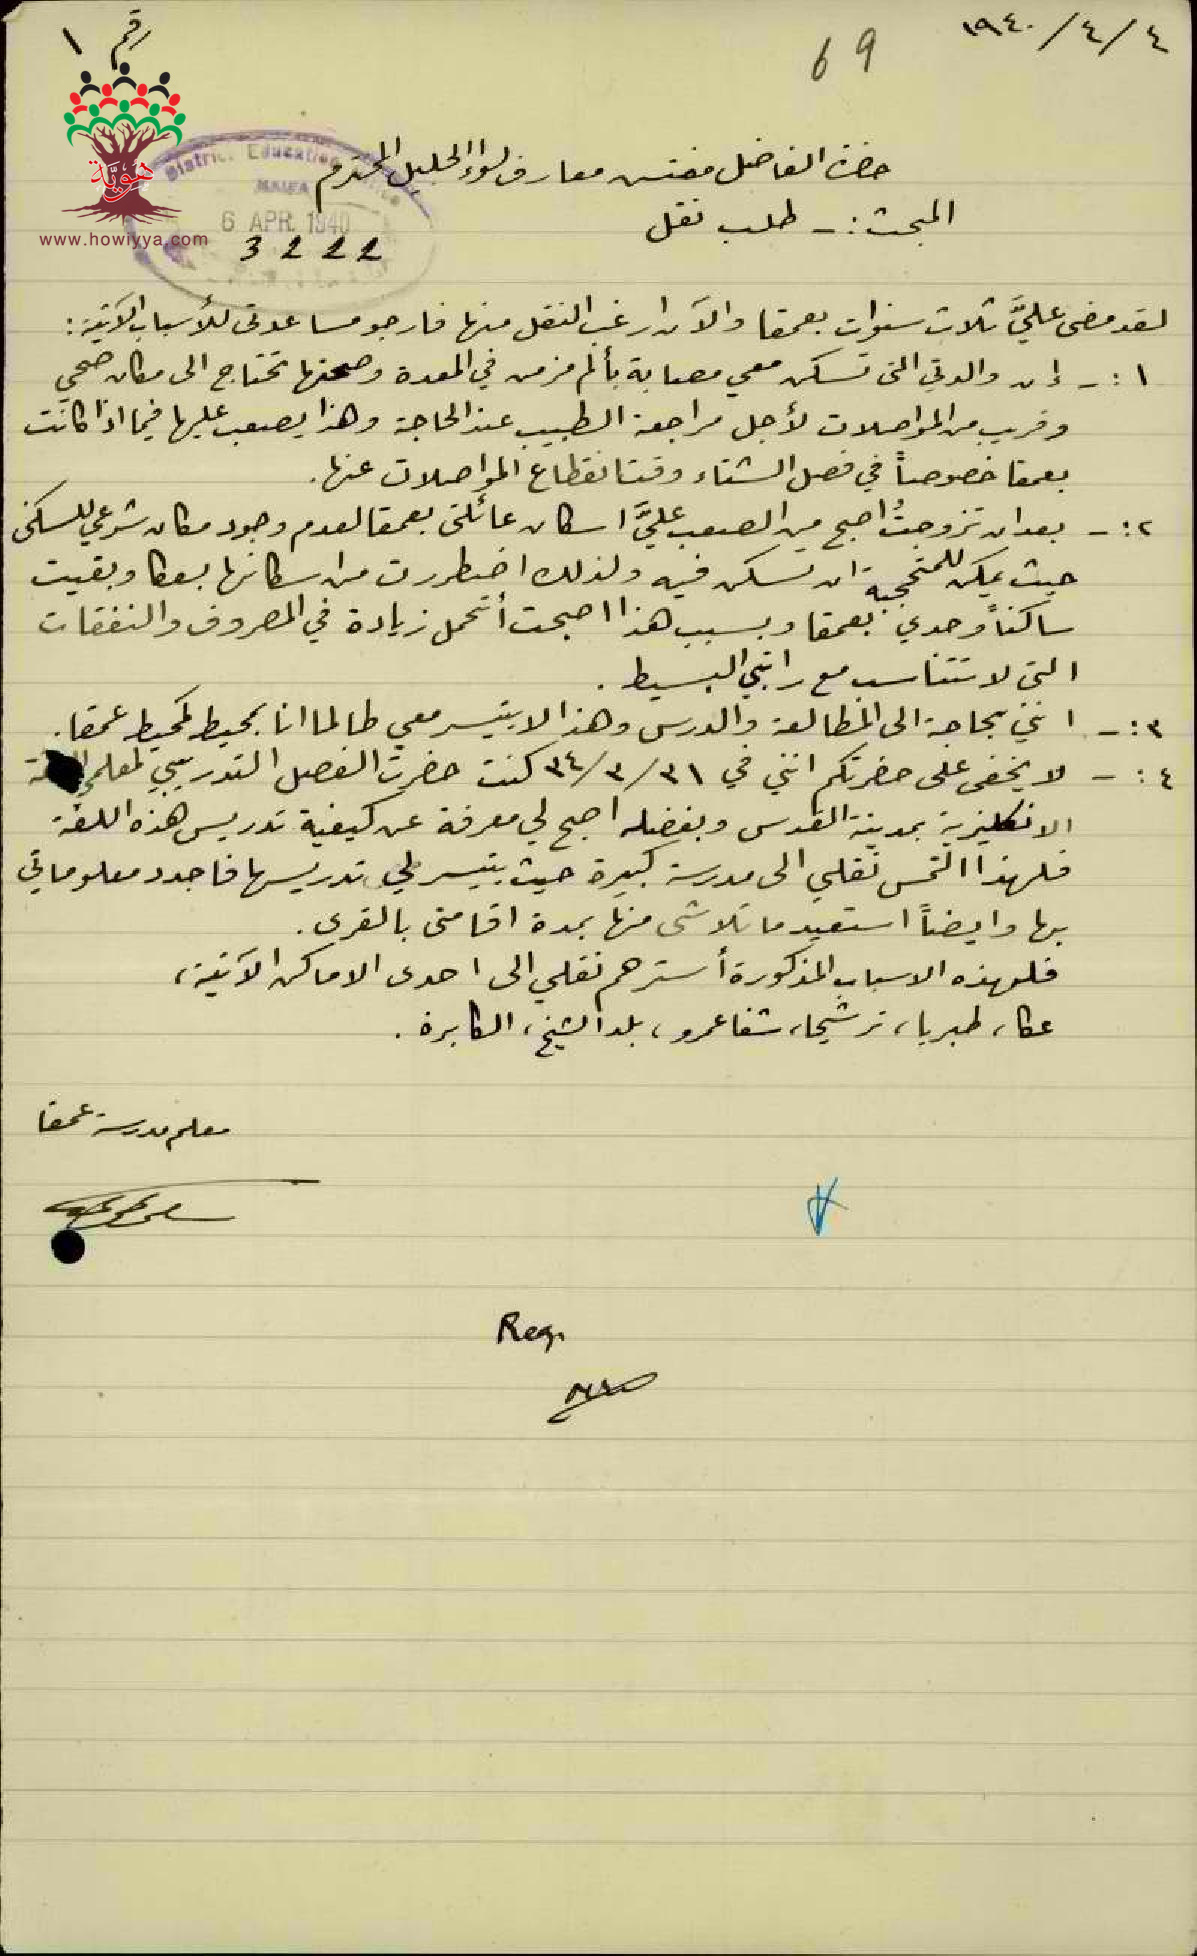 ١٩٤٠/٤/٤
69
رقم ١
هويّة
www.howiyya.com
District Education Office
HAIFA
6 APR 1940
3222
حضرة الفاضل مفتش معارف لواء الجليل المحترم
المبحث :- طلب نقل
لقد مضى عليَّ ثلاث سنوات بعمقا والآن ارغب النقل منها فارجو مساعدتي للأسباب الآتية :
١ :- إن والدتي التي تسكن معي مصابة بألم مزمن في المعدة وصحتها تحتاج الى مكان صحي
وقريب من المواصلات لأجل مراجعة الطبيب عند الحاجة وهذا يصعب عليها فيما اذا كانت
بعمقا خصوصاً في فصل الشتاء وقت انقطاع المواصلات عنها .
٢ :- بعد ان تزوجتُ اصبح من الصعب عليَّ اسكان عائلتي بعمقا لعدم وجود مكان شرعي للسكنى
حيث يمكن للمتحجبة ان تسكن فيه ولذلك اضطررت من اسكانها بعكا وبقيت
ساكناً وحدي بعمقا وبسبب هذا اصبحت أتحمل زيادة في المصروف والنفقات
التي لا تتناسب مع راتبي البسيط .
٣ :- انني بحاجة الى المطالعة والدرس وهذا لا يتيسر معي طالما انا بمحيط كمحيط عمقا .
٤ :- لا يخفى على حضرتكم انني في ٣٤/٣/٣١ كنت حضرت الفصل التدريبي لمعلمي
الانكليزية بمدينة القدس وبفضله اصبح لي معرفة عن كيفية تدريس هذه اللغة
فلهذا التمس نقلي الى مدرسة كبيرة حيث يتيسر لي تدريسها فاجدد معلوماتي
بها وايضاً استعيد ما تلاشى منها بمدة اقامتي بالقرى .
فلهذه الاسباب المذكورة أسترحم نقلي الى احدى الاماكن الآتية ،
عكا ، طبريا ، ترشيحا ، شفاعمرو ، بلد الشيخ ، الكابرة .
معلم مدرسة عمقا
Reg.